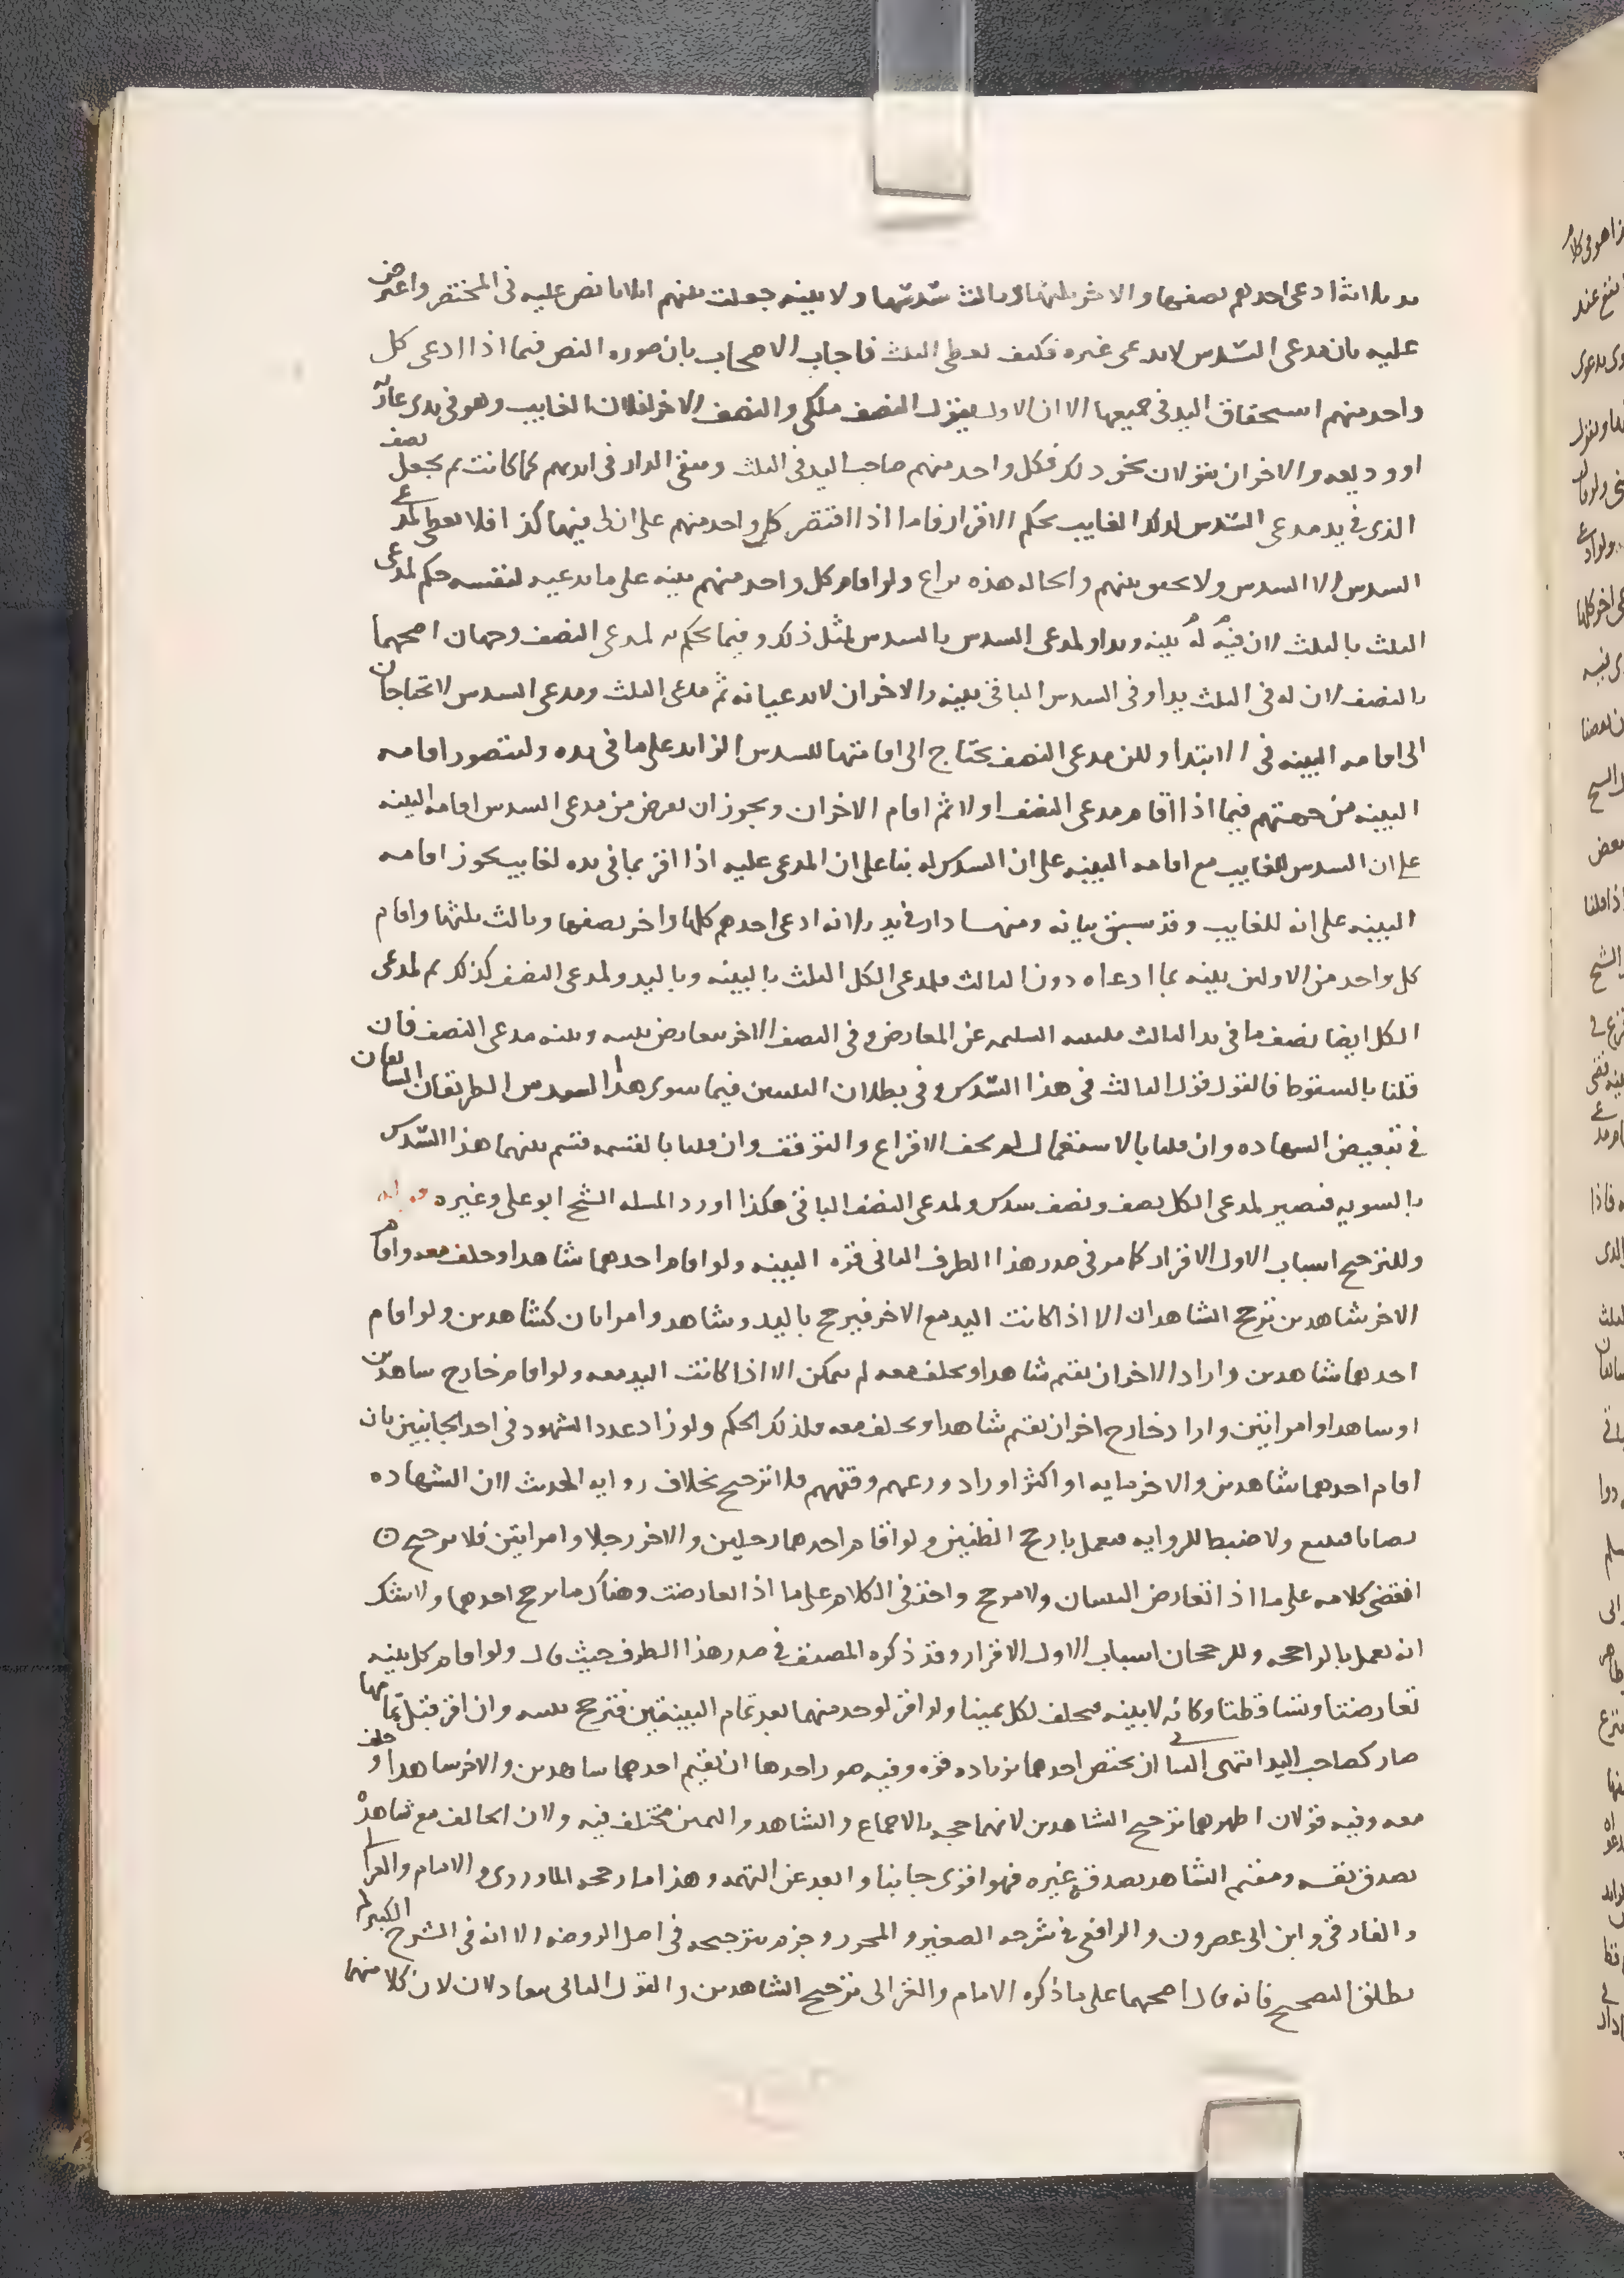 يد ثلاثة ادعى احدهم نصفها والاخر ثلثها وثالث سدسها ولا بينه جعلت بينهم اثلاثا نص عليه في المختصر واعترض
عليه بان مدعى السدس لا يدعى غيره فكيف يعطى الثلث فاجاب الاصحاب بان صوره النص فيما اذا ادعى كل
واحد منهم استحقاق اليد في جميعها الا ان الاول يقول النصف ملكي والنصف الاخر لفلان الغايب وهو في يدى عاريه
او وديعه والاخران يقولان نحو ذلك فكل واحد منهم صاحب اليد في الثلث وتبقى الدار في ايديهم كما كانت ثم يجعل نصف
الذى في يد مدعى السدس لذلك الغايب بحكم الاقرار فاما اذا اقتصر كل واحد منهم على ان لى منها كذا فلا يعطى لمدعى
السدس الا السدس ولا يتحقق بينهم والحاله هذه نزاع ولو اقام كل واحد منهم بينه على ما يدعيه لنفسه حكم لمدعى
الثلث بالثلث لان فيه له بينه ويدا ولمدعى السدس بالسدس لمثل ذلك وفيما يحكم به لمدعى النصف وجهان اصحهما
بالنصف لان له في الثلث يدا وفى السدس الباقي بينه والاخران لا يدعيانه ثم مدعى الثلث ومدعى السدس لا يحتاجان
الى اقامه البينه في الابتدا ولكن مدعى النصف يحتاج الى اقامتها للسدس الزايد على ما في يده وليتصور اقامه
البينه من جهتهم فيما اذا اقام مدعى النصف اولا ثم اقام الاخران ويجوز ان يعرض من مدعى السدس اقامه البينه
على ان السدس للغايب مع اقامه البينه على ان السدس له بنا على ان المدعى عليه اذا اقر بما في يده لغايب يجوز اقامه
البينه على انه للغايب وقد سبق بيانه ومنها دار في يد ثلاثه ادعى احدهم كلها واخر نصفها وثالث ثلثها واقام
كل واحد من الاولين بينه بما ادعاه دون الثالث فلمدعى الكل الثلث بالبينه وباليد ولمدعى النصف كذلك ثم لمدعى
الكل ايضا نصف ما في يد الثالث ببينته السليمه عن المعارض وفى النصف الاخر تتعارض بينته وبينه مدعى النصف فان
قلنا بالسقوط فالقول قول الثالث في هذا السدس وفى بطلان البينتين فيما سوى هذا السدس الطريقان السابقان
في تبعيض الشهاده وان قلنا بالاستعمال لم يخف الاقراع والتوقف وان قلنا بالقسمه قسم بينهما هذا السدس
بالسويه فيصير لمدعى الكل نصف ونصف سدس ولمدعى النصف الباقي هكذا اورد المسله الشيخ ابو على وغيره
وللترجيح اسباب الاول الاقرار كما مر في صدر هذا الطرف الثانى قوه البينه ولو اقام احدهما شاهدا وحلف معه واقام
الاخر شاهدين ترجح الشاهدان الا اذا كانت اليد مع الاخر فيرجح باليد وشاهد وامراتان كشاهدين ولو اقام
احدهما شاهدين واراد الاخر ان يقيم شاهدا ويحلف معه لم يمكن الا اذا كانت اليد معه ولو اقام خارج شاهدين
او شاهدا وامراتين واراد خارج اخر ان يقيم شاهدا ويحلف معه فلذلك الحكم ولو زاد عدد الشهود في احد الجانبين بان
اقام احدهما شاهدين والاخر مايه او اكثر او زاد ورعهم وفقههم فلا ترجيح بخلاف روايه الحديث لان الشهاده
نصابا فيتبع ولا ضبط للروايه فيعمل بارجح الظنين ولو اقام احدهما رجلين والاخر رجلا وامراتين فلا ترجيح
انقضى كلامه على ما اذا تعارض البينتان ولا مرجح واخذ في الكلام على ما اذا تعارضت وهناك ما يرجح احدهما ولا شك
انه يعمل بالراجحه وللرجحان اسباب الاول الاقرار وقد ذكره المصنف في صدر هذا الطرف حيث قال ولو اقام كل بينه
تعارضتا وتساقطتا وكانه لا بينه فيحلف لكل يمينا ولو اقر لواحد منهما بعد تمام البينتين فترجح بينته وان اقر قبل تمامها
صار كصاحب اليد انتهى الثانى ان يختص احدهما بزياده قوه وفيه صور احدها ان يقيم احدهما شاهدين والاخر شاهدا وحلف
معه وفيه قولان اظهرهما ترجيح الشاهدين لانهما حجه بالاجماع والشاهد واليمين مختلف فيه ولان الحالف مع شاهده
يصدق نفسه ومقيم الشاهد يصدق غيره فهو اقوى جانبا وابعد عن التهمه وهذا ما رجحه الماوردى والامام والغزالى
والفارقى وابن ابى عصرون والرافعى في شرحه الصغير والمحرر وجزم بترجيحه في اصل الروضه الا انه في الشرح الكبير لم
يطلق التصحيح فانه قال اصحهما على ما ذكره الامام والغزالى ترجيح الشاهدين والقول الثانى يتعادلان لان كلا منهما